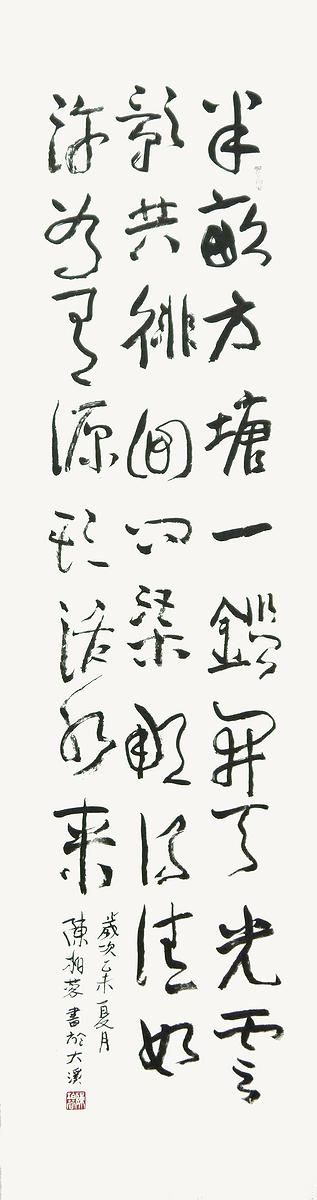 半畝方塘一鑑開天光雲
影共徘徊問渠那得清如
許為有源頭活水來
歲次乙未夏月
陳蓉書於大溪